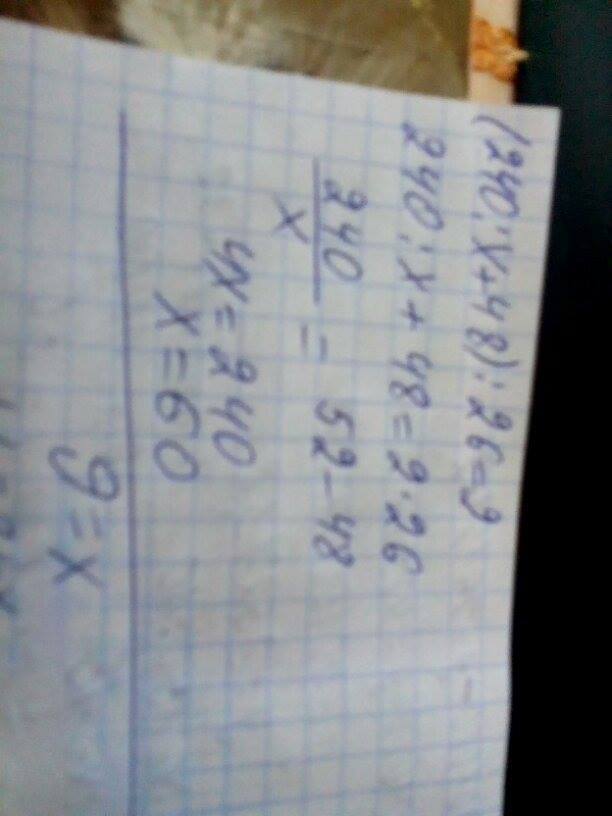 (240:x+48):26=2
240:x+48=2·26
240/x = 52-48
4x=240
x=60
9=x